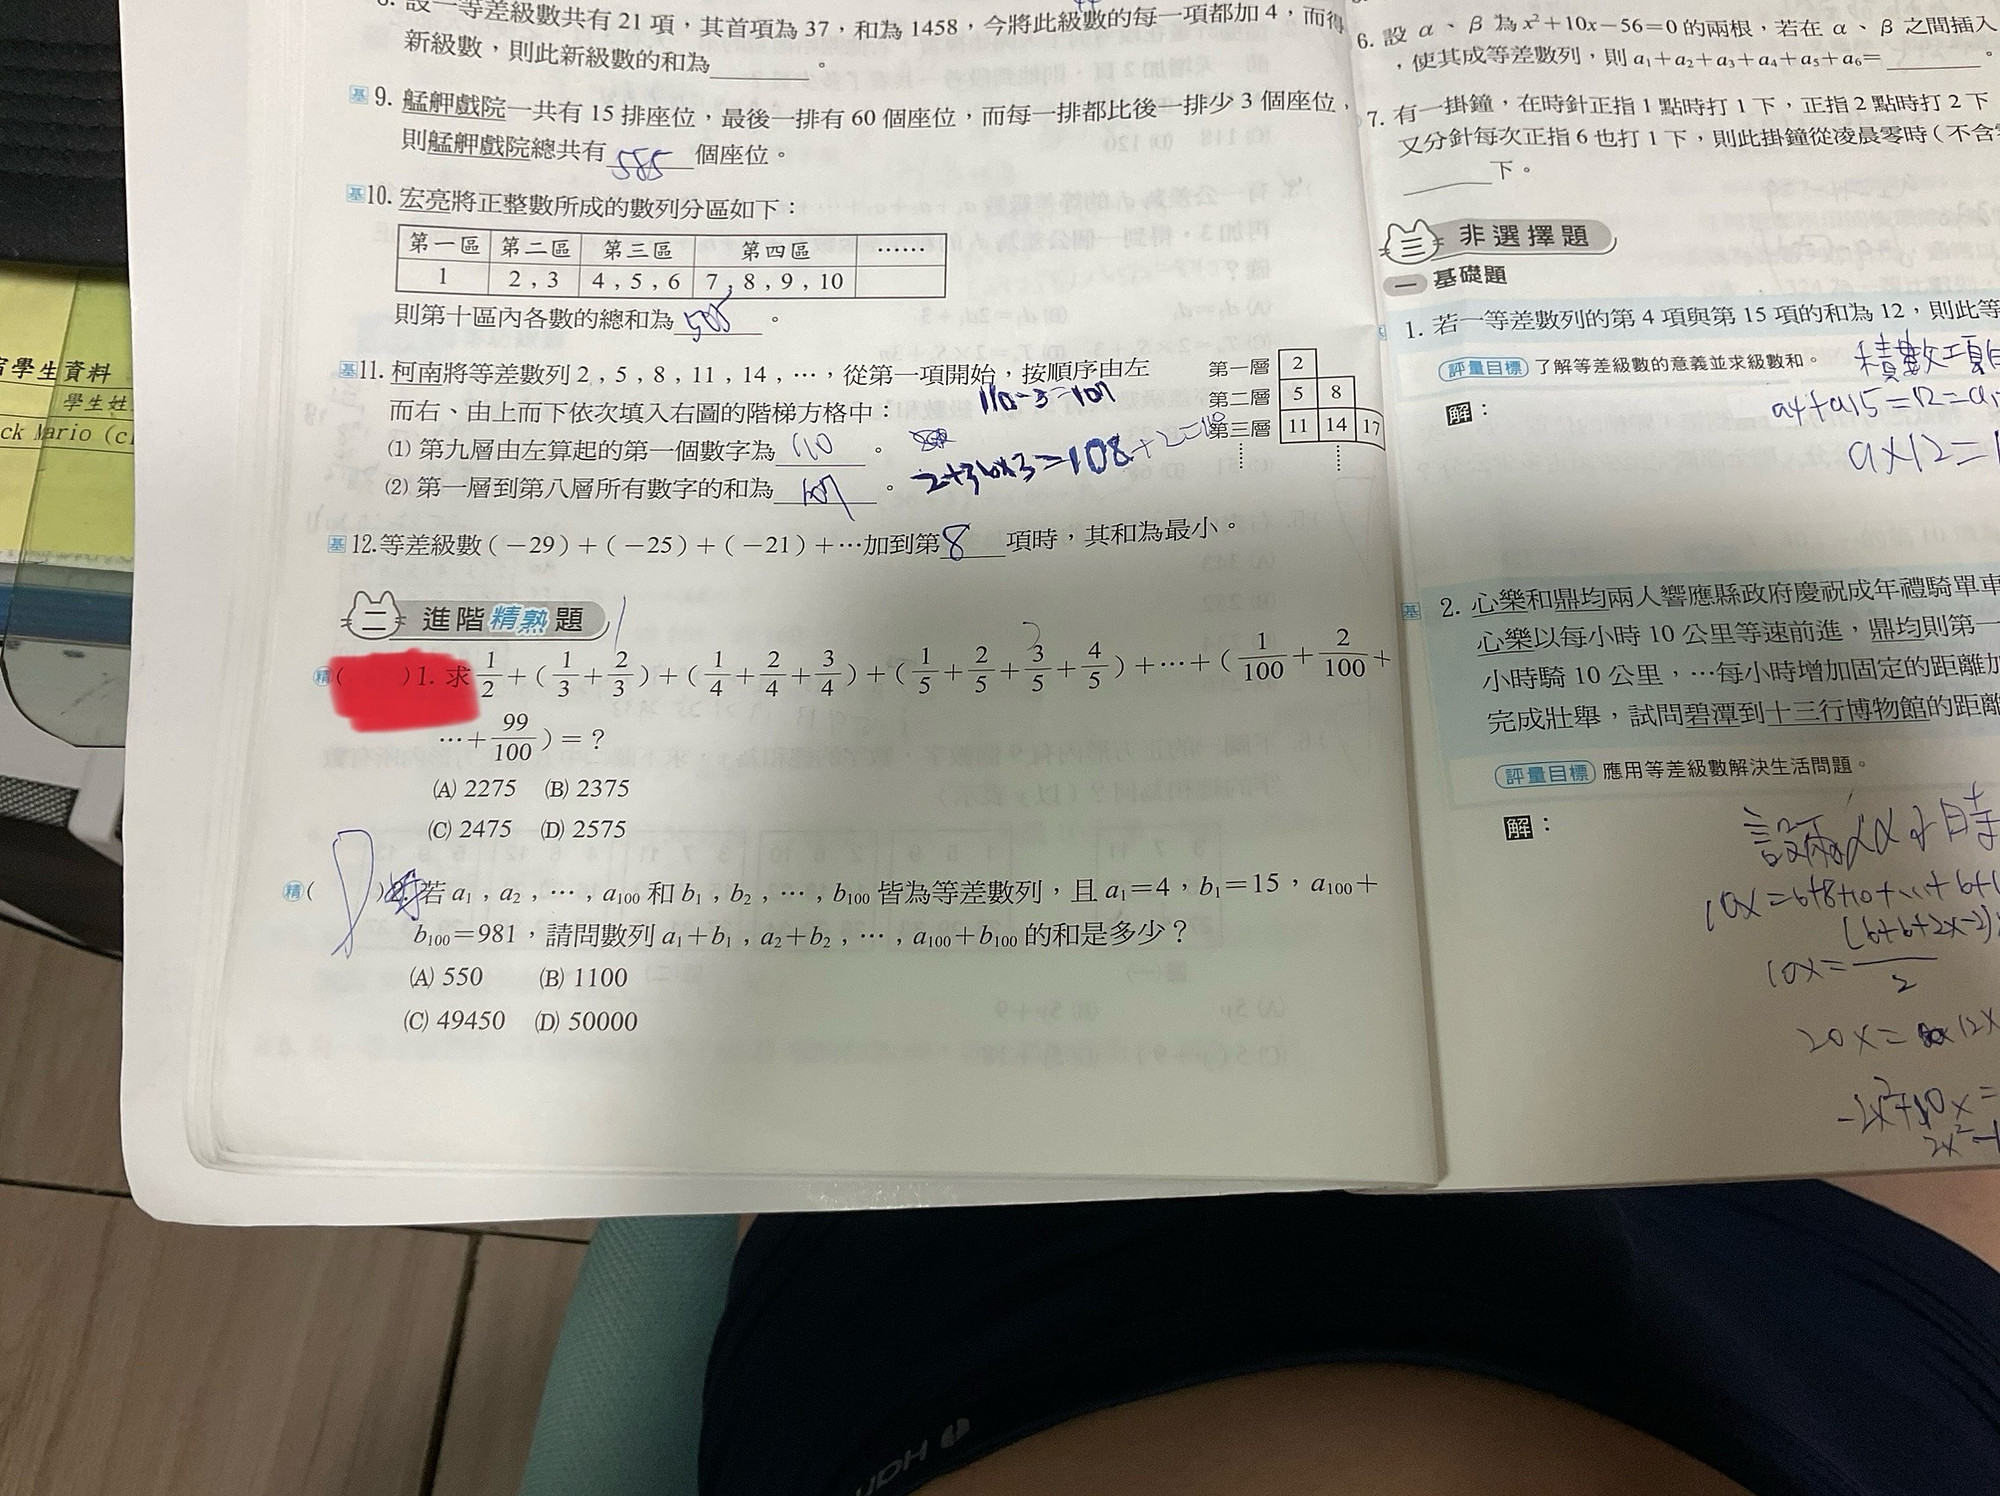 設一等差級數共有 21 項，其首項為 37，和為 1458，今將此級數的每一項都加 4，而得
新級數，則此新級數的和為________。
基 9. 艋舺戲院一共有 15 排座位，最後一排有 60 個座位，而每一排都比後一排少 3 個座位，
則艋舺戲院總共有 585 個座位。
基 10. 宏亮將正整數所成的數列分區如下：
第一區 第二區 第三區 第四區 ……
1 2 , 3 4 , 5 , 6 7 , 8 , 9 , 10
則第十區內各數的總和為 505 。
基 11. 柯南將等差數列 2 , 5 , 8 , 11 , 14 , …，從第一項開始，按順序由左
而右、由上而下依次填入右圖的階梯方格中：
110-3=107
⑴ 第九層由左算起的第一個數字為 110 。
2+36×3=108+2=110
⑵ 第一層到第八層所有數字的和為 107 。
第一層 2
第二層 5 8
第三層 11 14 17
⋮ ⋮
基 12. 等差級數（－29）＋（－25）＋（－21）＋…加到第 8 項時，其和為最小。
二 進階精熟題
精 ( ) 1. 求 1/2 + ( 1/3 + 2/3 ) + ( 1/4 + 2/4 + 3/4 ) + ( 1/5 + 2/5 + 3/5 + 4/5 ) + … + ( 1/100 + 2/100 +
… + 99/100 ) = ？
(A) 2275 (B) 2375
(C) 2475 (D) 2575
精 ( ) 若 a₁ , a₂ , … , a₁₀₀ 和 b₁ , b₂ , … , b₁₀₀ 皆為等差數列，且 a₁=4，b₁=15，a₁₀₀+
b₁₀₀=981，請問數列 a₁+b₁ , a₂+b₂ , … , a₁₀₀+b₁₀₀ 的和是多少？
(A) 550 (B) 1100
(C) 49450 (D) 50000
6. 設 α、β 為 x²+10x−56=0 的兩根，若在 α、β 之間插入
，使其成等差數列，則 a₁+a₂+a₃+a₄+a₅+a₆=________。
7. 有一掛鐘，在時針正指 1 點時打 1 下，正指 2 點時打 2 下
又分針每次正指 6 也打 1 下，則此掛鐘從凌晨零時（不含
________下。
三 非選擇題
一 基礎題
1. 若一等差數列的第 4 項與第 15 項的和為 12，則此等
評量目標 了解等差級數的意義並求級數和。
解：
a4+a15=12=a1
基 2. 心樂和鼎均兩人響應縣政府慶祝成年禮騎單車
心樂以每小時 10 公里等速前進，鼎均則第一
小時騎 10 公里，…每小時增加固定的距離加
完成壯舉，試問碧潭到十三行博物館的距離
評量目標 應用等差級數解決生活問題。
解：
10x=6+8+10+...+6+
(6+6+2x-2)
10x=
2
20x= 12x
-2x²+10x=
2x²-
學生資料
學生姓
ck Mario (c